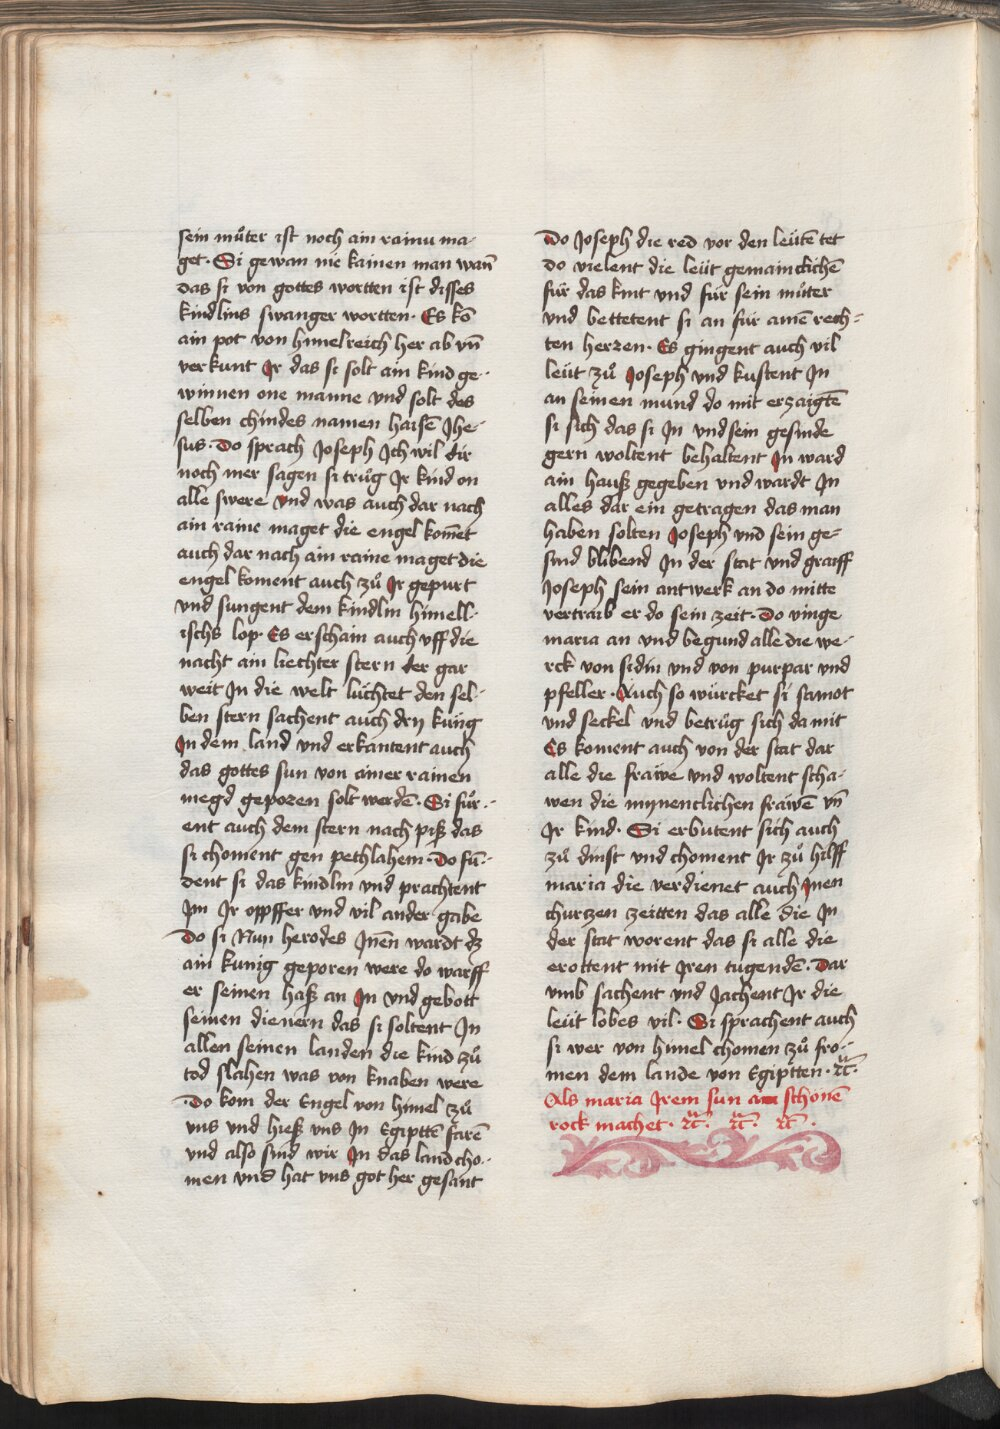 sein můter ist noch ain rainu ma-
get. Si gewan nie kainen man wan̄
das si von gottes wortten ist disses
kindlins swanger wortten. Es kō
ain pot von himelreich her ab vn̄
verkunt Jr das si solt ain kind ge-
winnen one manne vnd solt des
selben chindes namen haisē Jhe-
sus. Do sprach Joseph Jch wil dir
noch mer sagen si trůg Jr kind on
alle swere vnd was auch dar nach
ain raine maget die engel kom̄et
auch dar nach ain raine maget die
engel koment auch zů Jr gepurt
vnd sungent dem kindlin himell-
ischs lop. Es erschain auch vff die
nacht ain liechter stern der gar
weit Jn die welt lůchtet den sel-
ben stern sachent auch drÿ kůnig
Jn dem land vnd erkantent auch
das gottes sun von ainer rainen
megd geporen solt werdē. Si fůr-
ent auch dem stern nach piß das
si choment gen pethlahem. Do fu̅-
dent si das kindlin vnd prachtent
Jm Jr oppffer vnd vil ander gabe
Do si Nun herodes Jnēn wardt dz
ain kunig geporen were do warff
er seinen haß an Jn vnd gebott
seinen dienern das si soltent Jn
allen seinen landen die kind zů
tod slahen was von knaben were
Do kom der Engel von himel zů
vns vnd hieß vns Jn Egipttē farē
vnd also sind wir Jn das land cho-
men vnd hat vns got her gesant
Do Joseph die red vor den leůtē tet
do vielent die leůt gemaincklichē
fůr das kint vnd fůr sein můter
vnd bettetent si an fůr ainē rech-
ten herzen. Es gingent auch vil
leůt zů Joseph vnd kustent Jn
an seinen mund do mit erzaigtē
si sich das si Jn vnd sein gesinde
gern woltent behaltent Jn ward
ain hauß gegeben vnd wardt Jn
alles dar ein getragen das man
haben solten Joseph vnd sein ge-
sind blibend Jn der stat vnd graiff
Joseph sein antwerk an do mitte
vertraib er do sein zeit. Do vinge
maria an vnd begund alle die we-
rck von sidin vnd von purpar vnd
pfeller. Auch so wůrcket si samot
vnd seckel vnd betrůg sich da mit
Es koment auch von der stat dar
alle die frawe vnd woltent scha-
wen die mÿnenclichen frawē vn̄
Jr kind. Si erbutent sich auch
zů dinst vnd choment Jr zů hilff
maria die verdienet auch Jnen
churzen zeitten das alle die Jn
der stat worent das si alle die
erottent mit Jren tugendē. Dar
vmb sachent vnd Jachent Jr die
leůt lobes vil. Si sprachent auch
si wer von himel chomen zů fro-
men dem lande von Egiptten. rc̄.
Als maria Jrem sun schonē
rock machet. rc̄. rc̄. rc̄.